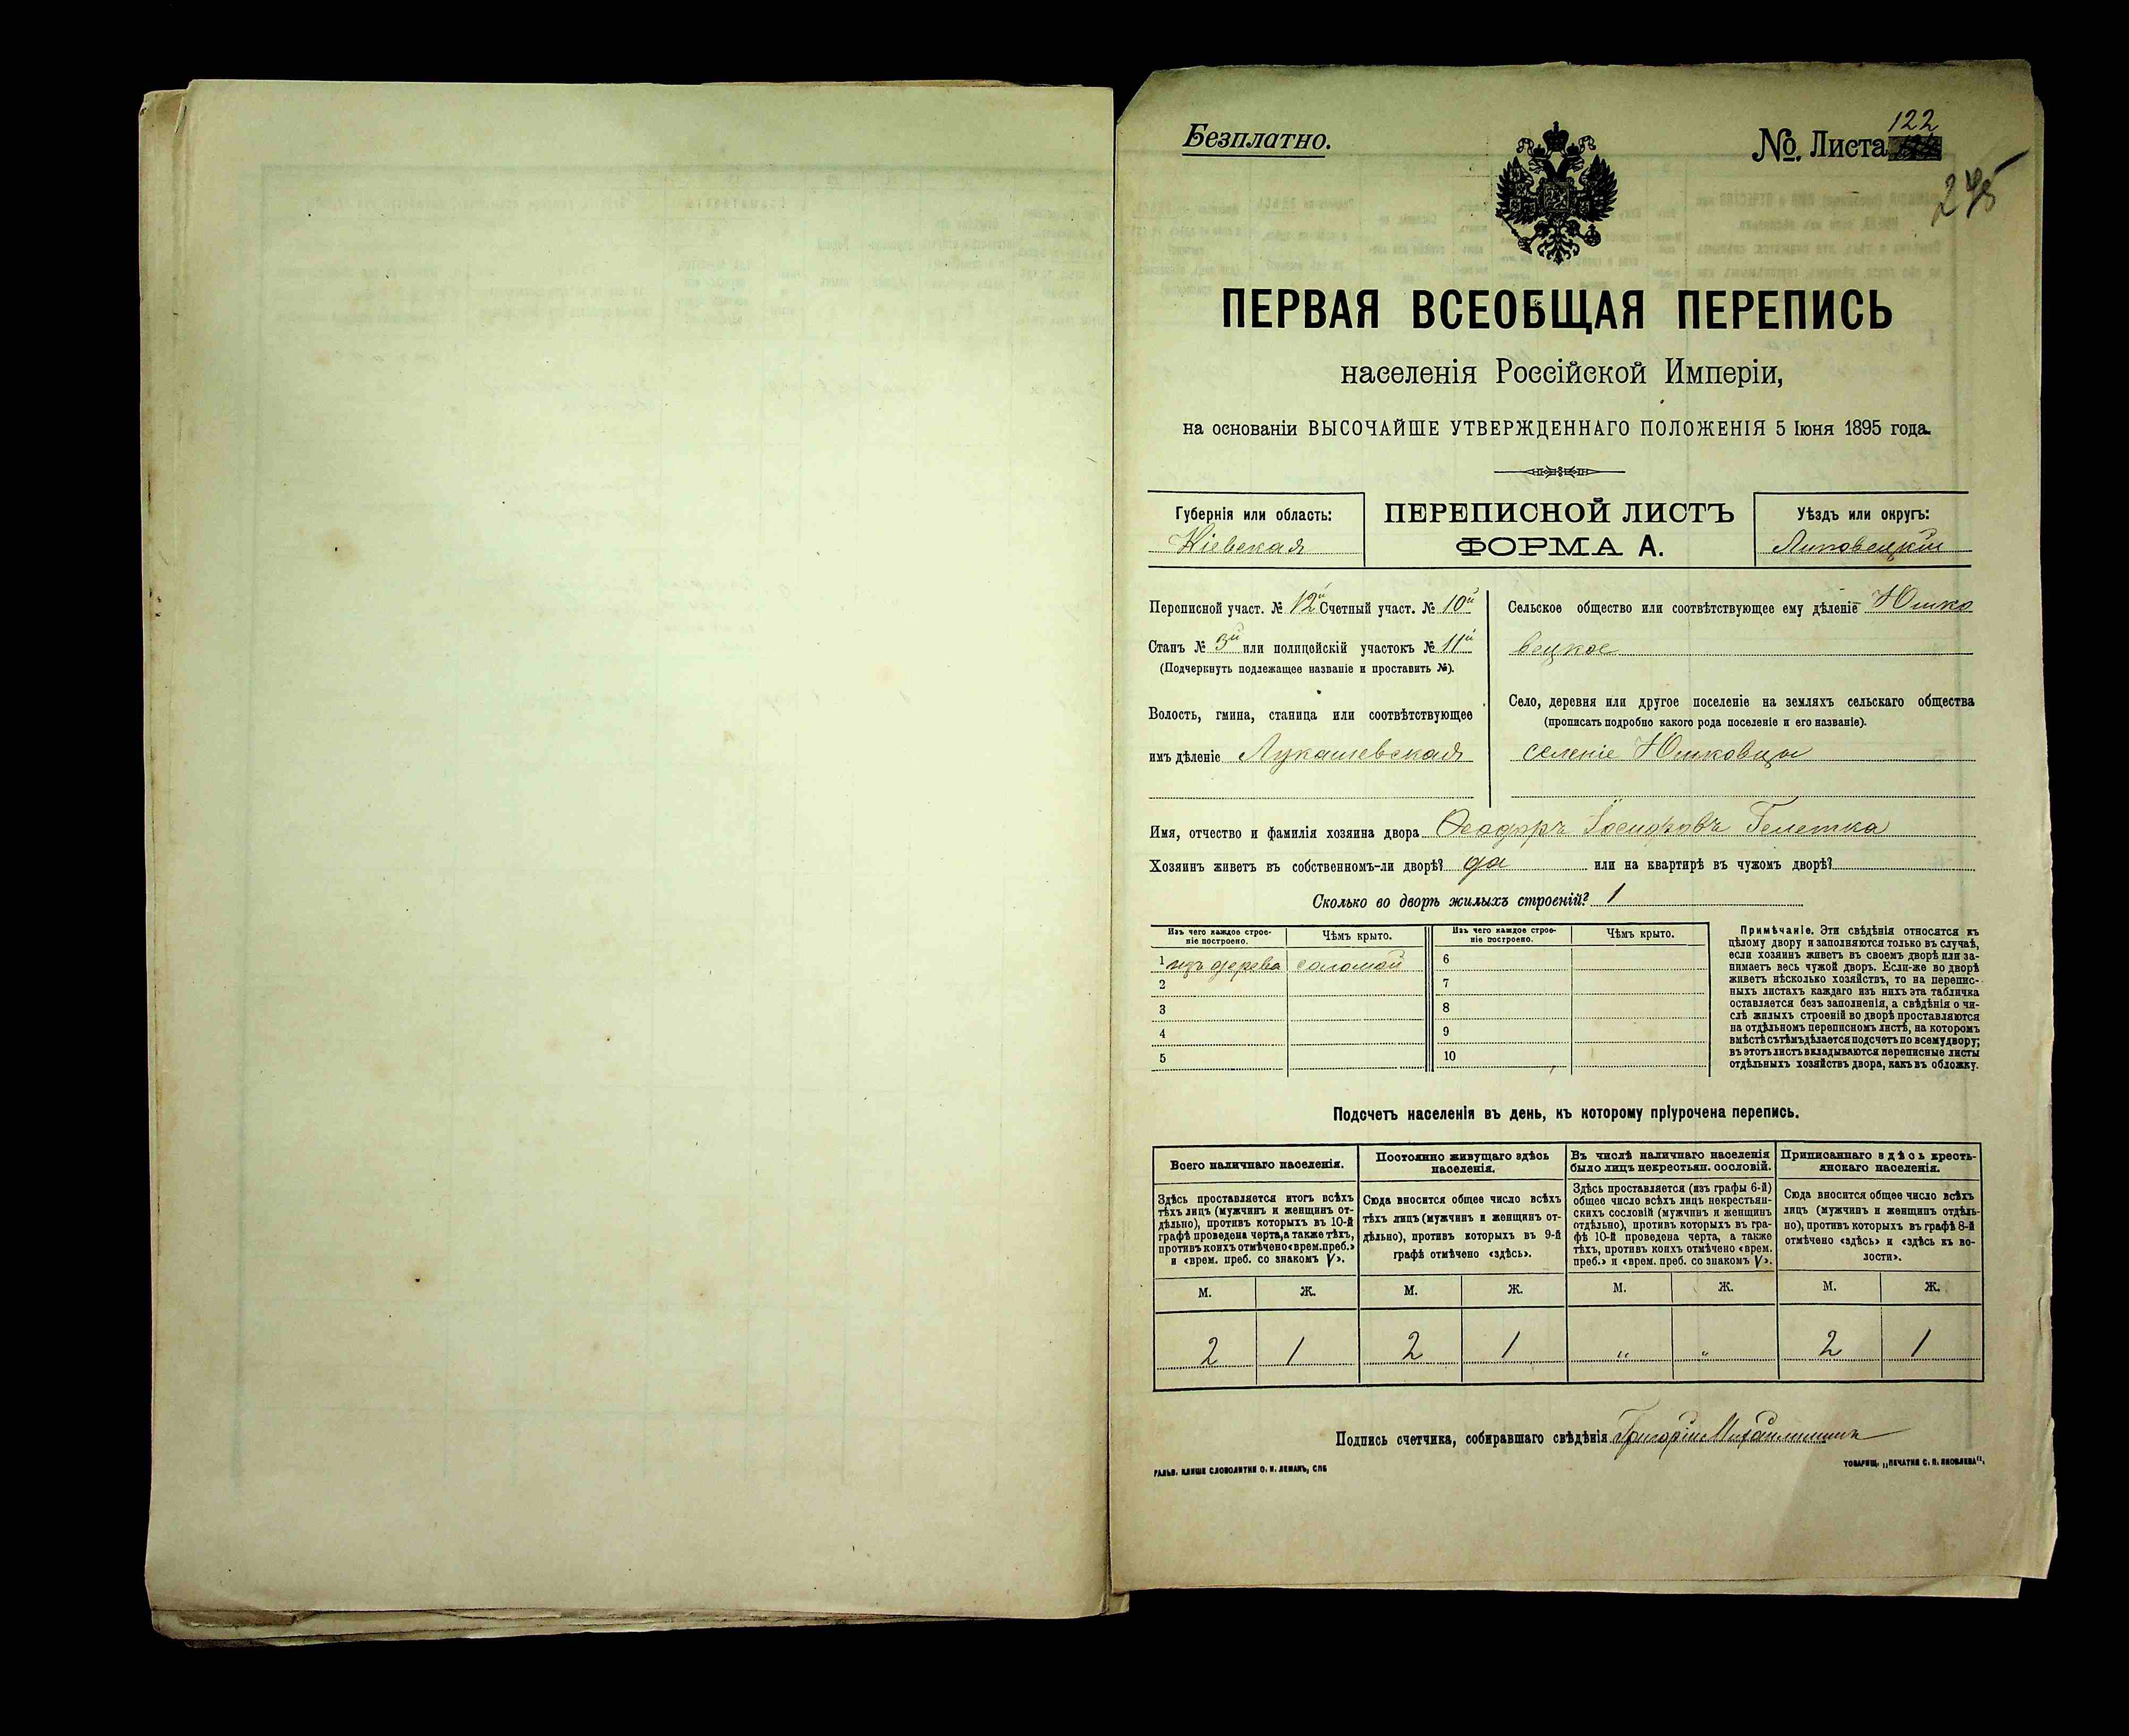 Безплатно.
№ Листа 122
245
ПЕРВАЯ ВСЕОБЩАЯ ПЕРЕПИСЬ
населенія Россійской Имперіи,
на основаніи ВЫСОЧАЙШЕ УТВЕРЖДЕННАГО ПОЛОЖЕНІЯ 5 Іюня 1895 года.
Губернія или область:
Кіевская
ПЕРЕПИСНОЙ ЛИСТЪ
ФОРМА А.
Уѣздъ или округъ:
Липовецкій
Переписной участ. № 12й Счетный участ. № 10й
Станъ № 3й или полицейскій участокъ № 11й
(Подчеркнуть подлежащее названіе и проставить №).
Волость, гмина, станица или соотвѣтствующее
имъ дѣленіе Лукашевская
Сельское общество или соотвѣтствующее ему дѣленіе Юшко
вецкое
Село, деревня или другое поселеніе на земляхъ сельскаго общества
(прописать подробно какого рода поселеніе и его названіе).
селеніе Юшковцы
Имя, отчество и фамилія хозяина двора Ѳеодоръ Іосифовъ Гелетка
Хозяинъ живетъ въ собственномъ-ли дворѣ? да или на квартирѣ въ чужомъ дворѣ?
Сколько во дворѣ жилыхъ строеній? 1
Изъ чего каждое строе-
ніе построено.
Чѣмъ крыто.
Изъ чего каждое строе-
ніе построено.
Чѣмъ крыто.
1 изъ дерева соломой 6
2 7
3 8
4 9
5 10
Примѣчаніе. Эти свѣдѣнія относятся къ
цѣлому двору и заполняются только въ случаѣ,
если хозяинъ живетъ въ своемъ дворѣ или за-
нимаетъ весь чужой дворъ. Если-же во дворѣ
живетъ нѣсколько хозяйствъ, то на перепис-
ныхъ листахъ каждаго изъ нихъ эта табличка
оставляется безъ заполненія, а свѣдѣнія о чи-
слѣ жилыхъ строеній во дворѣ проставляются
на отдѣльномъ переписномъ листѣ, на которомъ
вмѣстѣ съ тѣмъ дѣлается подсчетъ по всему двору;
въ этотъ листъ вкладываются переписные листы
отдѣльныхъ хозяйствъ двора, какъ въ обложку.
Подсчетъ населенія въ день, къ которому пріурочена перепись.
Всего наличнаго населенія.
Здѣсь проставляется итогъ всѣхъ
тѣхъ лицъ (мужчинъ и женщинъ от-
дѣльно), противъ которыхъ въ 10-й
графѣ проведена черта, а также тѣхъ,
противъ коихъ отмѣчено «врем. преб.»
и «врем. преб. со знакомъ V».
Постоянно живущаго здѣсь
населенія.
Сюда вносится общее число всѣхъ
тѣхъ лицъ (мужчинъ и женщинъ от-
дѣльно), противъ которыхъ въ 9-й
графѣ отмѣчено «здѣсь».
Въ числѣ наличнаго населенія
было лицъ некрестьян. сословій.
Здѣсь проставляется (изъ графы 6-й)
общее число всѣхъ лицъ некрестьян-
скихъ сословій (мужчинъ и женщинъ
отдѣльно), противъ которыхъ въ гра-
фѣ 10-й проведена черта, а также
тѣхъ, противъ коихъ отмѣчено «врем.
преб.» и «врем. преб. со знакомъ V».
Приписаннаго здѣсь кресть-
янскаго населенія.
Сюда вносится общее число всѣхъ
лицъ (мужчинъ и женщинъ отдѣль-
но), противъ которыхъ въ графѣ 8-й
отмѣчено «здѣсь» и «здѣсь къ во-
лости».
М. Ж. М. Ж. М. Ж. М. Ж.
2 1 2 1 " " 2 1
Подпись счетчика, собиравшаго свѣдѣнія Григорій
ГАЛЬВ. КЛИШЕ СЛОВОЛИТНИ О. И. ЛЕМАНЪ, СПБ
ТОВАРИЩ. „ПЕЧАТНЯ С. П. ЯКОВЛЕВА".